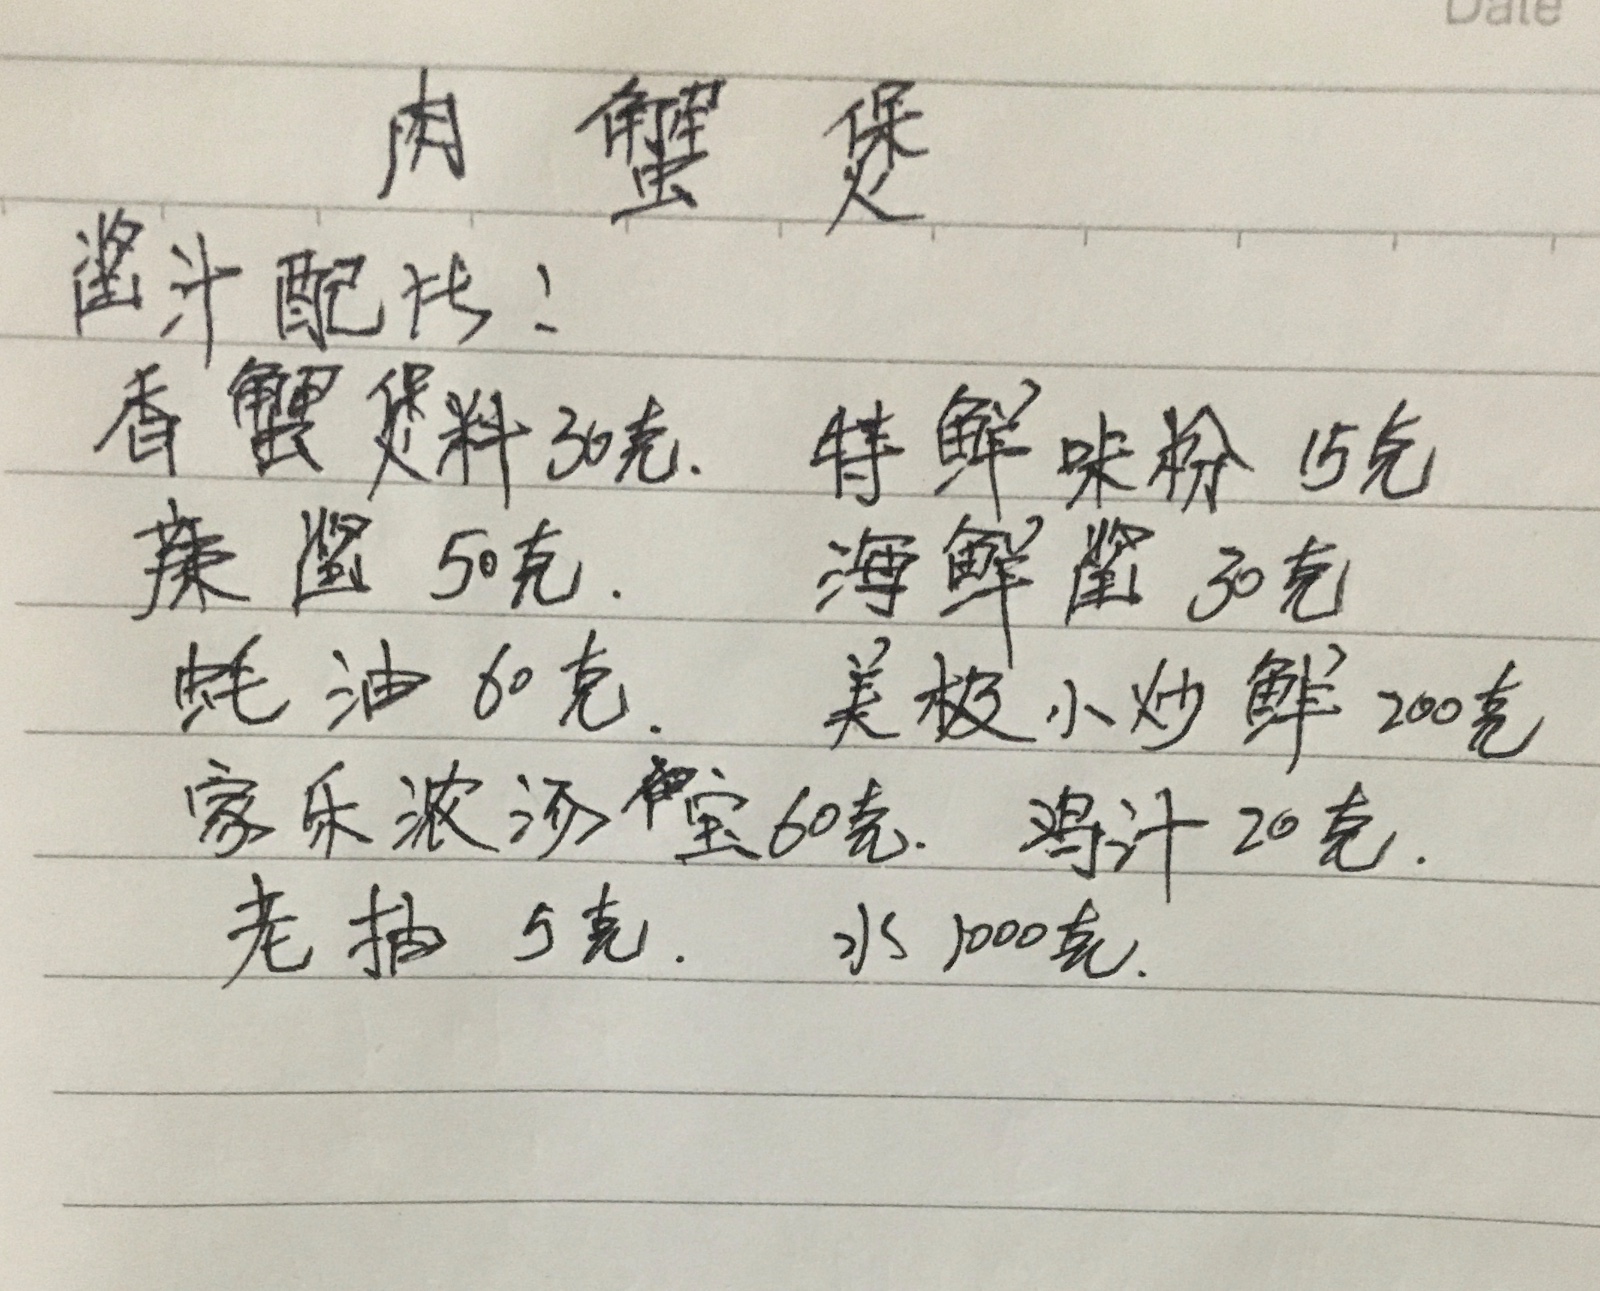 Date
肉蟹煲
酱汁配比：
香蟹煲料30克. 特鲜味粉 15克
辣酱 50克. 海鲜酱 30克
蚝油 60克. 美极小炒鲜 200克
家乐浓汤宝60克. 鸡汁 20克.
老抽 5克. 水 1000克.